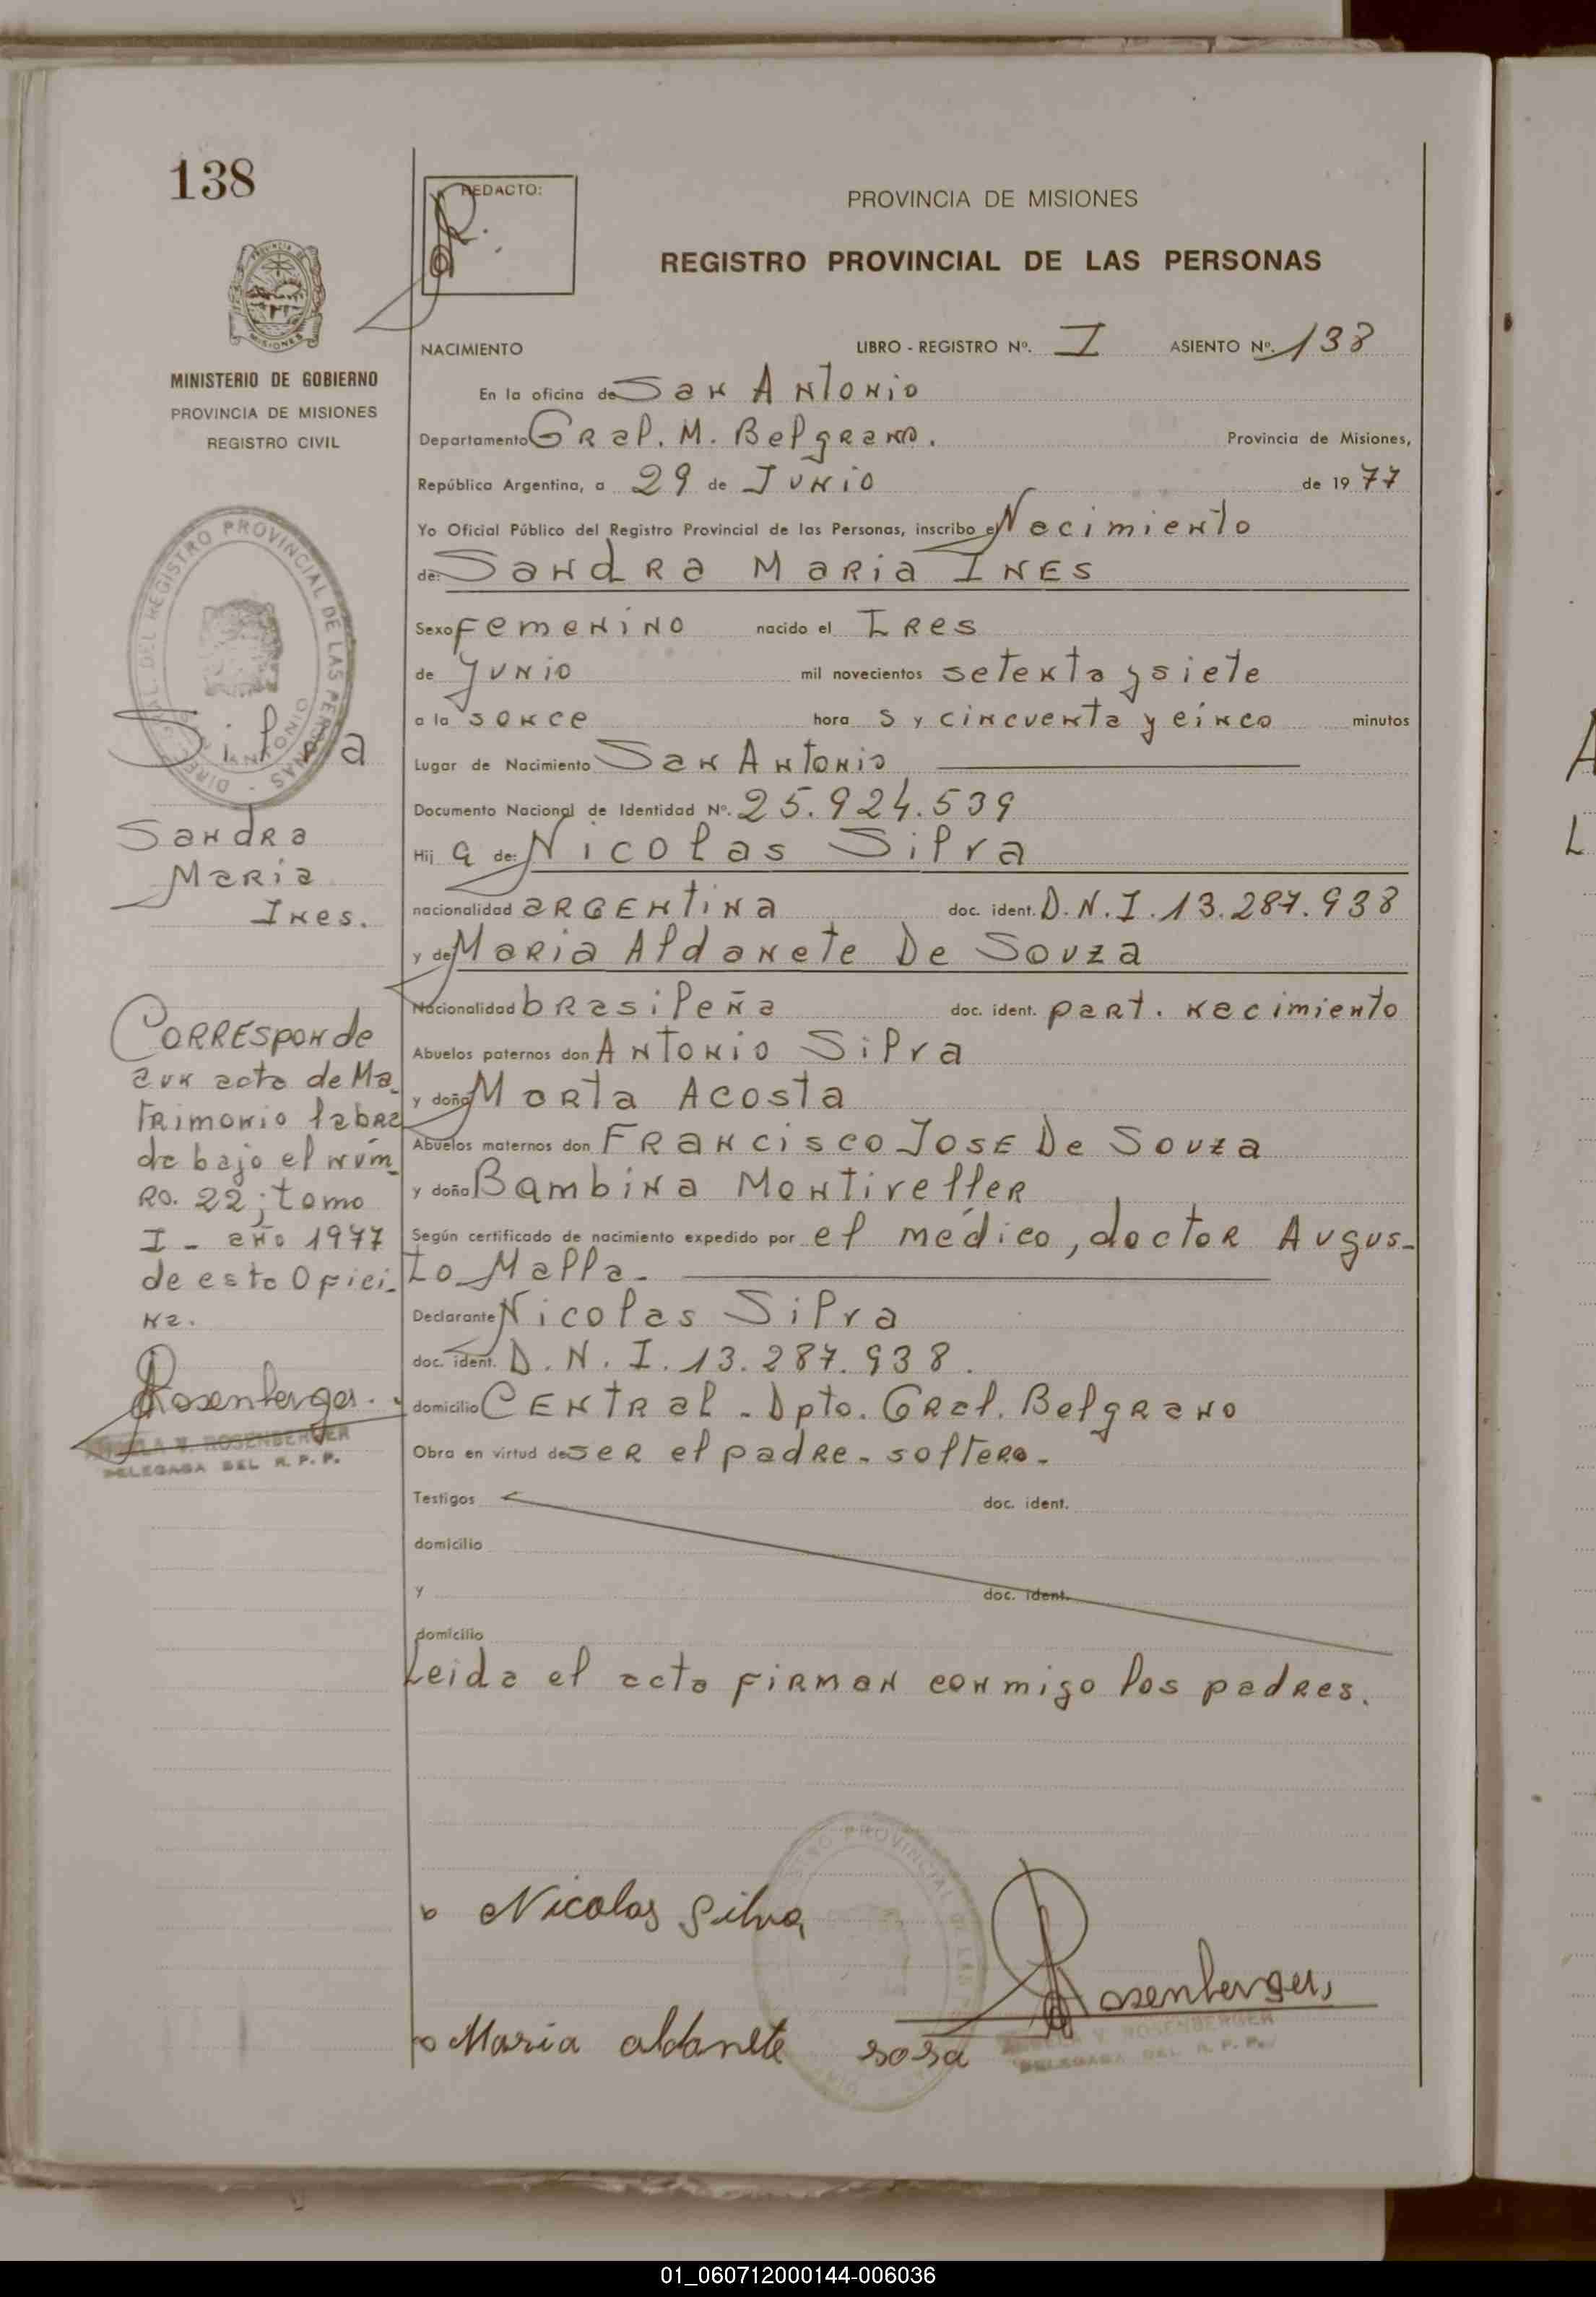 138
REDACTO:
PROVINCIA DE MISIONES
REGISTRO PROVINCIAL DE LAS PERSONAS
MINISTERIO DE GOBIERNO
PROVINCIA DE MISIONES
REGISTRO CIVIL
NACIMIENTO LIBRO - REGISTRO Nº. I ASIENTO Nº. 138
En la oficina de San Antonio
Departamento Gral. M. Belgrano. Provincia de Misiones,
República Argentina, a 29 de Junio de 1977
Yo Oficial Público del Registro Provincial de las Personas, inscribo el Nacimiento
de: Sandra Maria Ines
Sexo femenino nacido el Tres
de Junio mil novecientos setenta y siete
a la s once hora s y cincuenta y cinco minutos
Lugar de Nacimiento San Antonio
Documento Nacional de Identidad Nº. 25.924.539
Hij a de: Nicolas Silva
nacionalidad argentina doc. ident. D.N.I. 13.287.938
y de Maria Aldanete De Souza
Nacionalidad brasileña doc. ident. part. nacimiento
Abuelos paternos don Antonio Silva
y doña Marta Acosta
Abuelos maternos don Francisco Jose De Souza
y doña Bambina Montiveller
Según certificado de nacimiento expedido por el médico, doctor Augus-
to Malla.
Declarante Nicolas Silva
doc. ident. D.N.I. 13.287.938.
domicilio Central - Dpto. Gral. Belgrano
Obra en virtud de ser el padre - soltero.
Testigos doc. ident.
domicilio
y doc. ident.
domicilio
Leida el acta firman conmigo los padres.
Silva
Sandra
Maria
Ines.
Corresponde
a un acta de Ma-
trimonio labra
da bajo el núm-
ro. 22; tomo
I - año 1977
de esta Ofici-
na.
Rosenberger.
ANGELA V. ROSENBERGER
DELEGADA DEL R. P. P.
Nicolas Silva
Rosenberger
Maria aldanete sosa
ANGELA V. ROSENBERGER
DELEGADA DEL R. P. P.
01_060712000144-006036